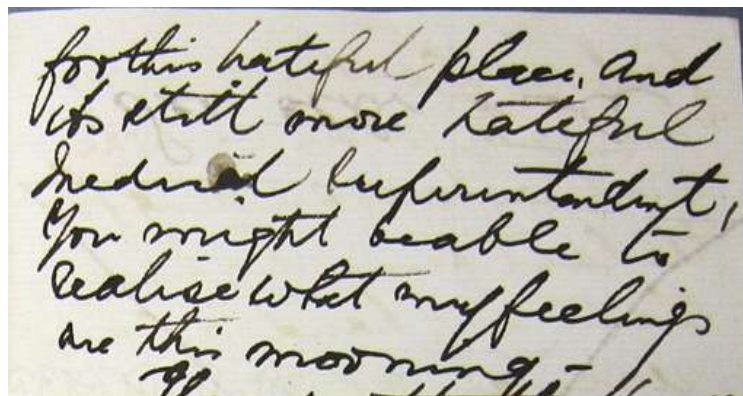 for this hateful place. And
its still more hateful
Medical Superintendent,
You might be able to
realise what my feelings
are this morning -